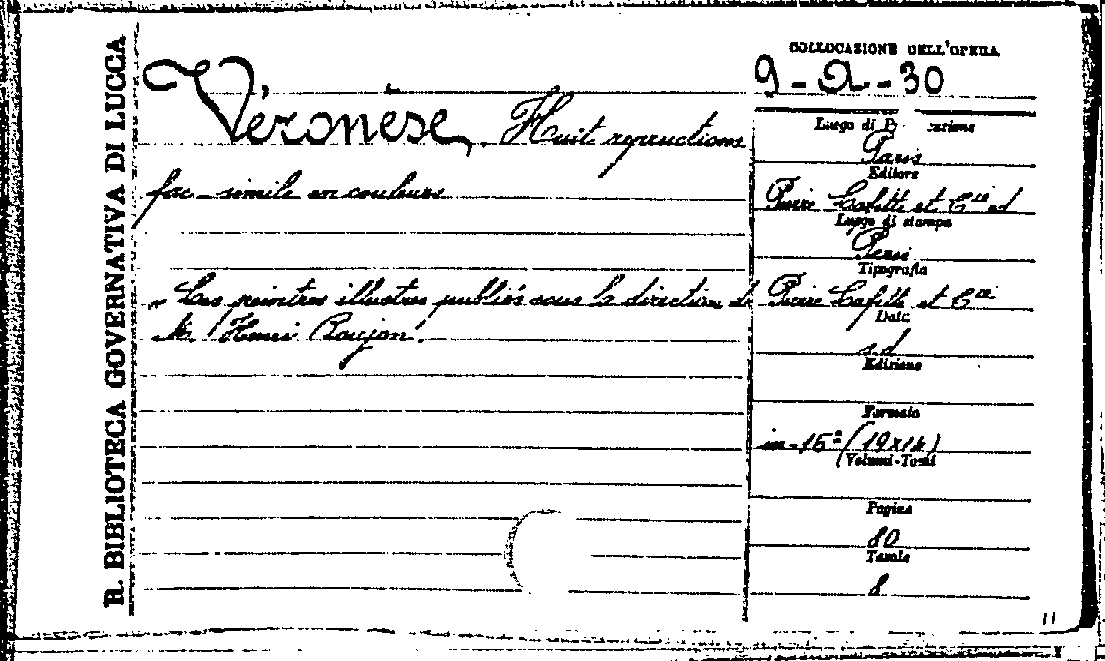 R. BIBLIOTECA GOVERNATIVA DI LUCCA
Véronèse. Huit repructions
fac-simile en couleurs
"Les peintres illustres publiés sous la direction de
M. Henri Roujon".
COLLOCAZIONE DELL'OPERA
9-a-30
Luogo di
Paris
Editore
Pierre Lafitte et Cie ed
Luogo di stampa
Paris
Tipografia
Pierre Lafitte et Cie
Data
s.d.
Edizione
Formato
in-16º (19x14)
Volumi-Tomi
Pagine
80
Tavole
8